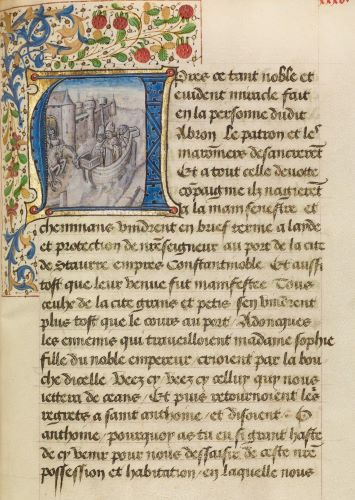 xxxv
Apres ce tant noble et
evident miracle fait
en la personne dudit
Abron Le patron et les
maronniers desancrerent
Et a tout celle devotte
compaignie ilz nagierent
a la main senestre et
cheminans vindrent en brief terme a lande
et protection de nreseigneur au port de la cite
de Stavrre empres Constantnoble Et aussi
tost que leur venue fut manifestee Tous
ceulx de la cite grans et petis sen vindrent
plus tost que le cours au port / Adoncques
les ennemis qui travailloient madame sophie
fille du noble empereur crioient par la bou
che dicelle Veez cy Veez cy celluy qui nous
iettera de ceans / Et puis retournoient les
regretz a saint anthoine / et disoient O
anthoine / pourquoy as tu eu si grant haste
de cy venir pour nous dessaisir de ceste nre
possession et habitation / en laquelle nous